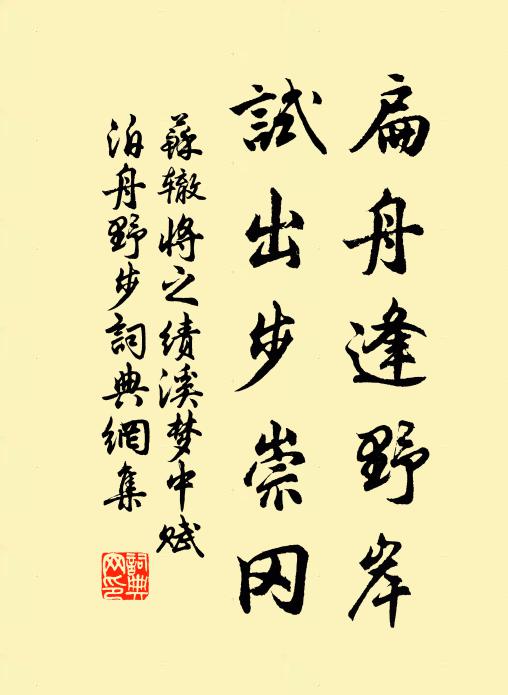 扁舟逢野岸
試出步崇冈
蘇辙將之绩溪梦中赋
泊舟野步詞典網集
詞典
网印